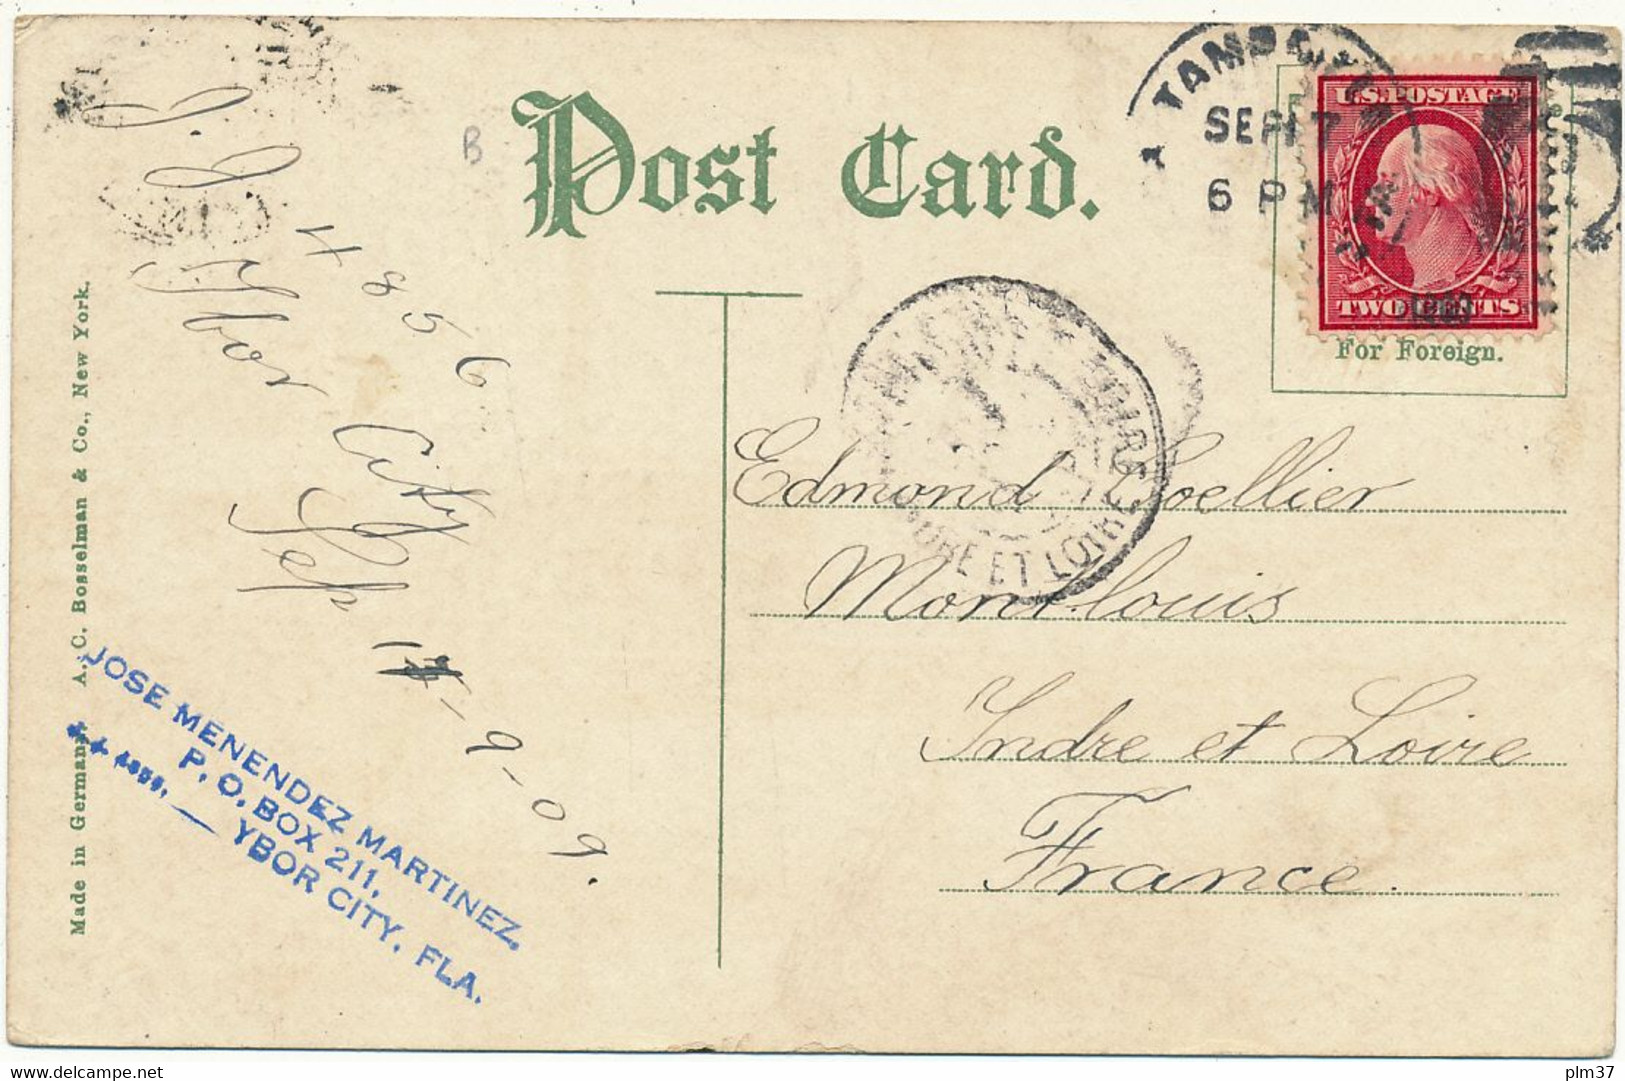 Post Card.
B
TAMPA
SEP 17
6 PM
U.S. POSTAGE
TWO CENTS
For Foreign.
J. J.
4856
Ybor City
Sep 17-9-09.
INDRE ET LOIRE
Edmond Loellier
Montlouis
Indre et Loire
France.
JOSE MENENDEZ MARTINEZ,
P. O. BOX 211,
YBOR CITY, FLA.
Made in Germany. A. C. Bosselman & Co., New York.
plm37